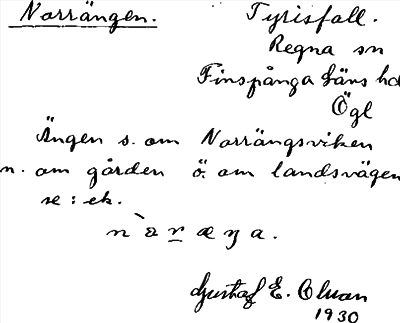 Norrängen. Tyrisfall.
Regna sn
Finspånga läns hd
Ögl
Ängen s. om Norrängsviken
n. om gården ö. om landsvägen
se: ek.
Gustaf E. Olsson
1930